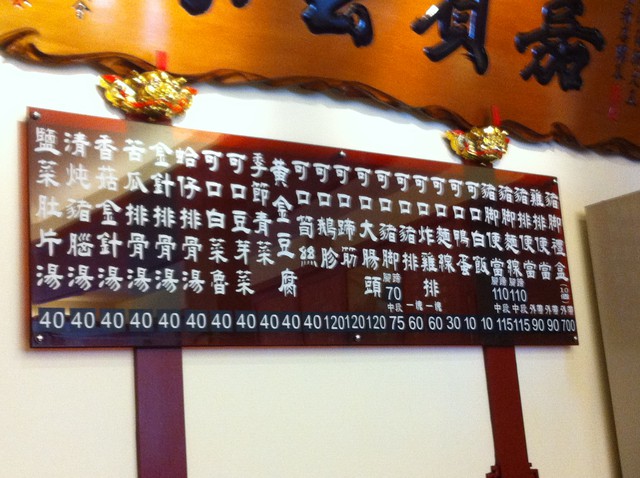 嘉賓雲
豬脚禮盒(10個)外帶 700
雞排便當 外帶 90
豬排便當 外帶 90
豬脚麵粿 腳蹄110 中段 115
豬脚便當 腳蹄110 中段 115
可口白飯 10
可口鴨蛋 10
可口麵粿 30
可口炸雞排 一塊 60
可口豬排 一塊 60
可口豬脚 腳蹄70 中段 75
可口大腸頭 120
可口蹄筋 120
可口鵝胗 120
可口筍絲 40
黃金豆腐 40
季節青菜 40
可口豆芽菜 40
可口白菜魯 40
蛤仔排骨湯 40
金針排骨湯 40
苦瓜排骨湯 40
香菇金針湯 40
清炖豬腦湯 40
鹽菜肚片湯 40